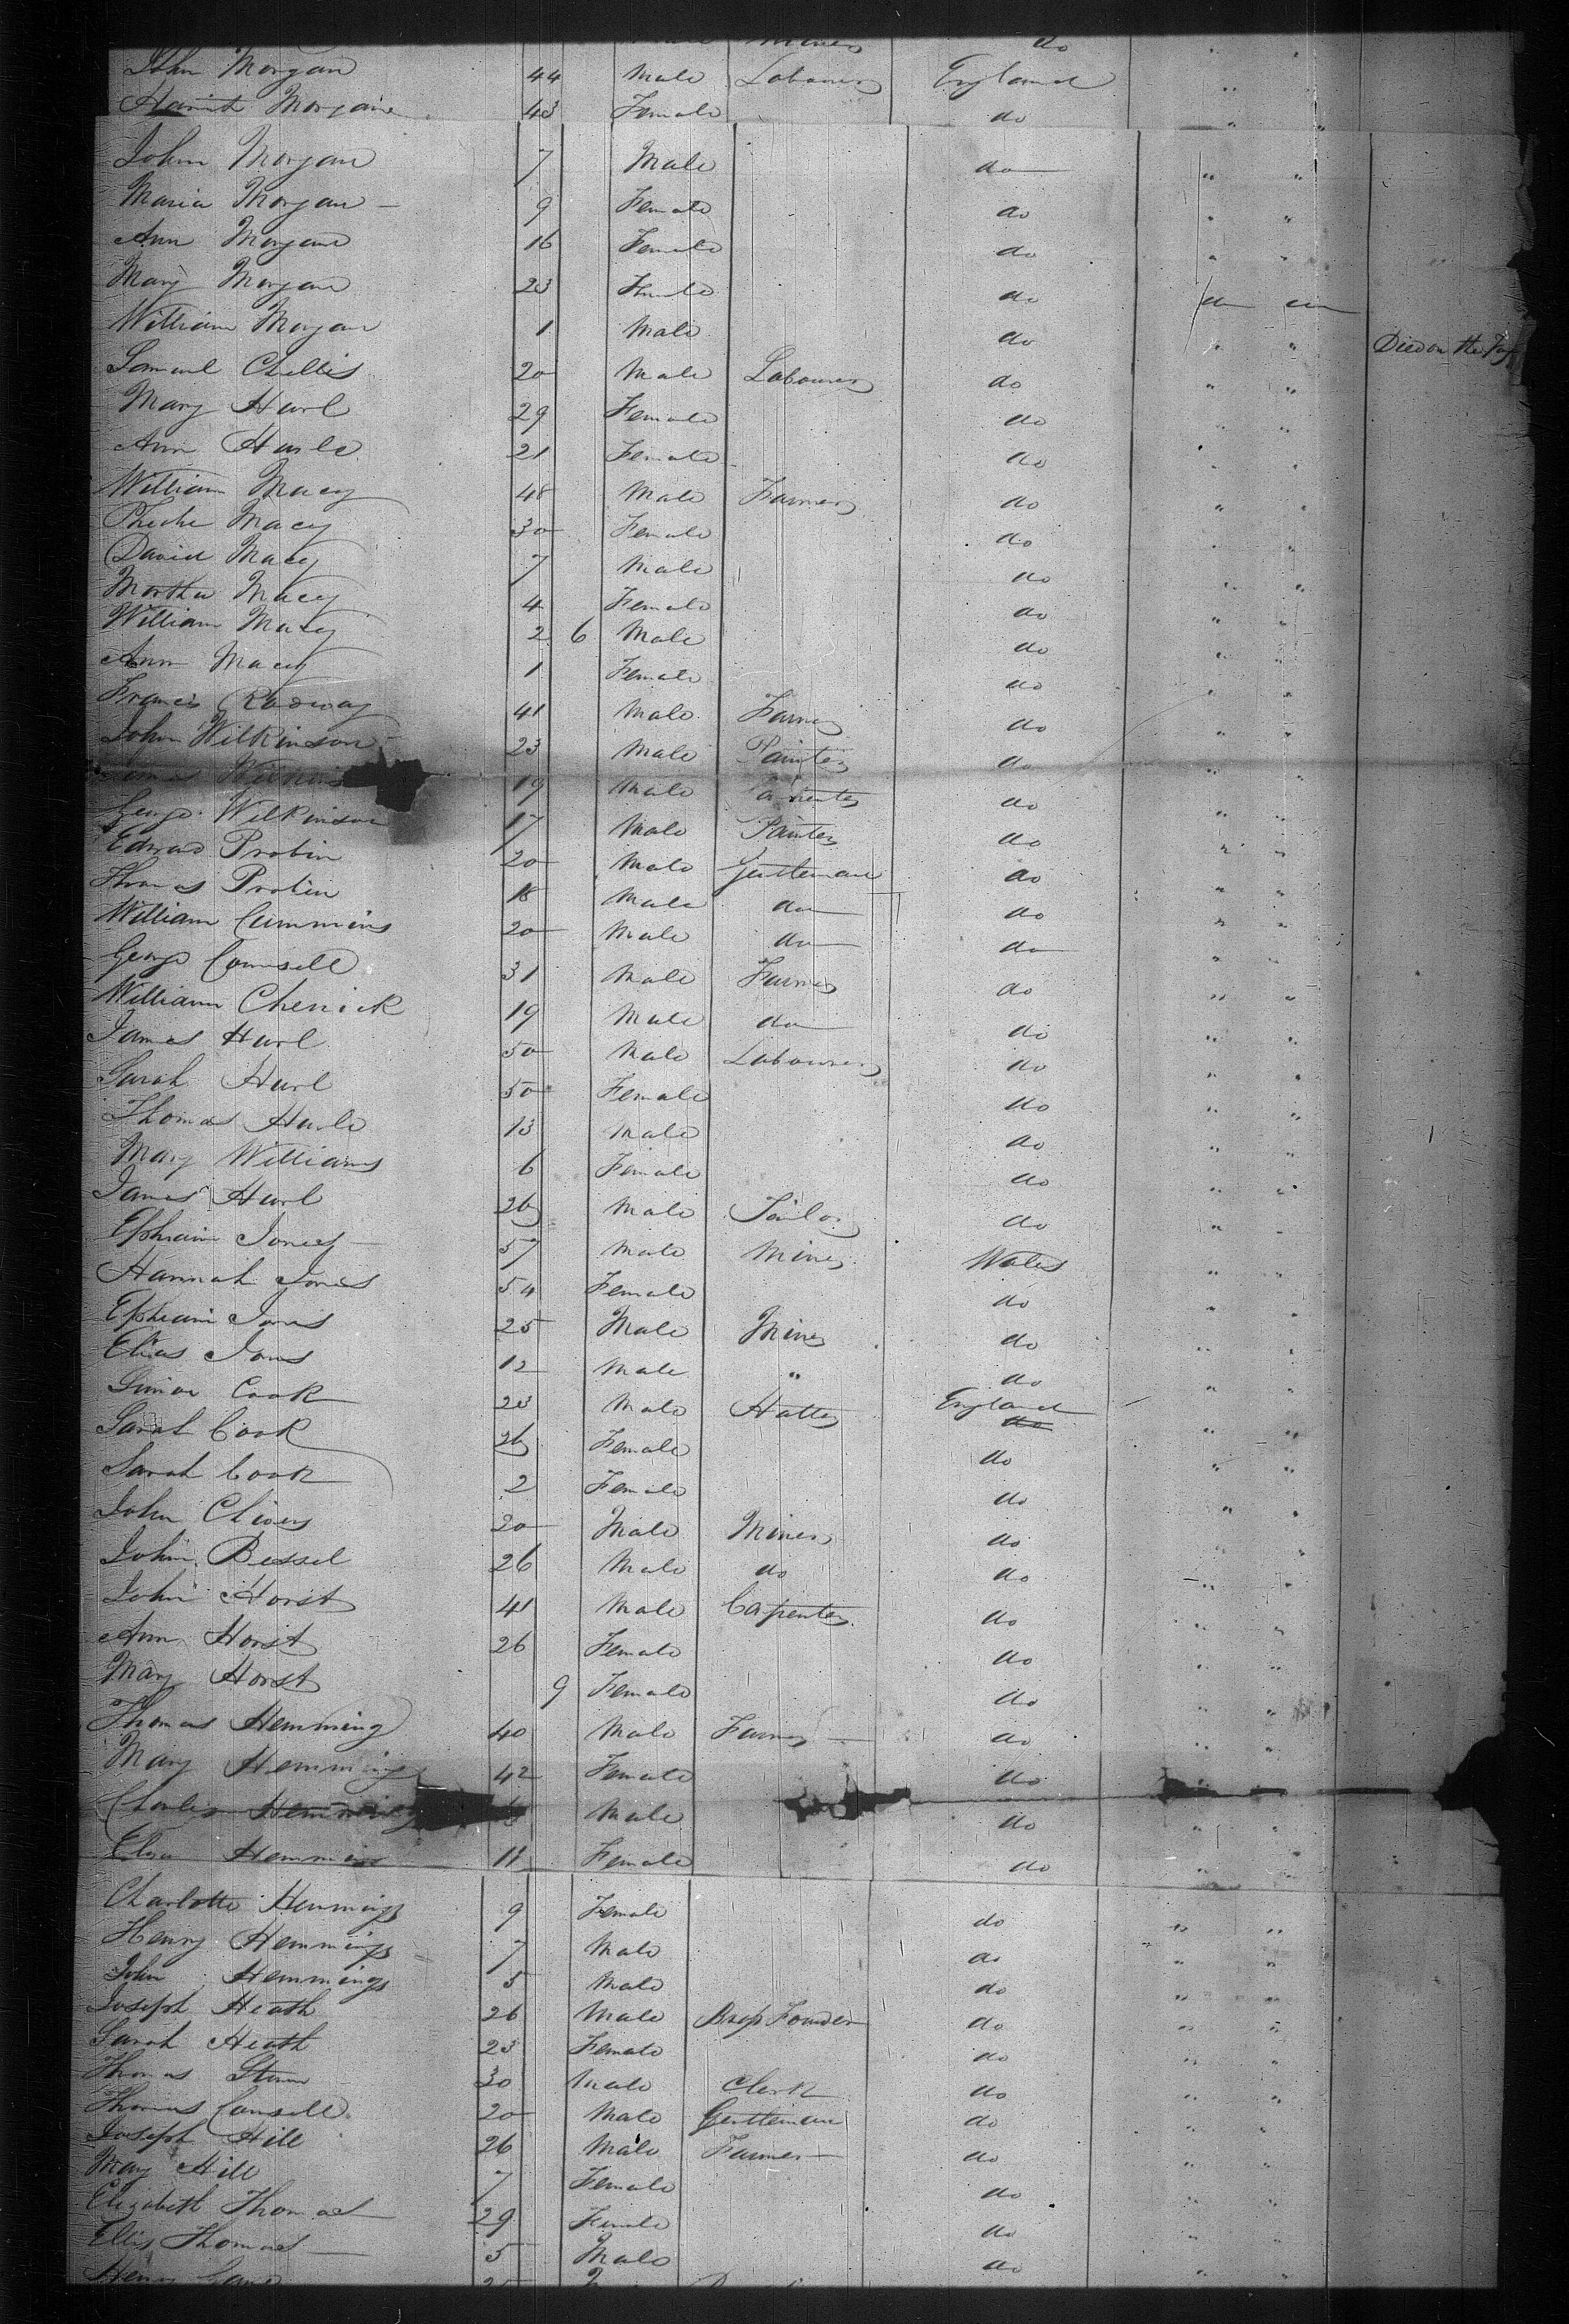 do
John Morgan 44 Male Labourer England " "
Morgan 43 Female do " "
John Morgan 7 Male do " "
Maria Morgan 9 Female do " "
Ann Morgan 16 Female do " "
Mary Morgan 23 Female do do do
William Morgan 1 Male do " " Died on the
Samuel Chillis 20 Male Labourer do " "
Mary Hurl 29 Female do " "
Ann Hurle 21 Female do " "
William Macey 48 Male Farmer do " "
Phebe Macey 30 Female do " "
David Macey 7 Male do " "
Martha Macey 4 Female do " "
William Macey 2 6 Male do " "
Ann Macey 1 Female do " "
Francis Radway 41 Male Farmer do " "
John Wilkinson 23 Male Painter do " "
19 Male Carpenter do " "
George Wilkinson 17 Male Painter do " "
Edward Probin 20 Male Gentleman do " "
Thomas Probin 18 Male do do " "
William Cummins 20 Male do do " "
George Counsell 31 Male Farmer do " "
William Cherrick 19 Male do do " "
James Hurl 50 Male Labourer do " "
Sarah Hurl 50 Female do " "
Thomas Hurle 13 Male do " "
Mary Williams 6 Female do " "
James Hurl 26 Male Tailor do " "
Ephraim Jones 57 Male Miner Wales " "
Hannah Jones 54 Female do " "
Ephraim Jones 25 Male Miner do " "
Elias Jones 12 Male " do " "
Simon Cook 23 Male Hatter England do " "
Sarah Cook 26 Female do " "
Sarah Cook 2 Female do " "
John Chivers 20 Male Miner do " "
John Bessel 26 Male do do " "
John Horst 41 Male Carpenter do " "
Ann Horst 26 Female do " "
Mary Horst 9 Female do " "
Thomas Hemming 40 Male Farmer do " "
Mary Hemming 42 Female do
Charles Hemming Male do " "
Eliza Hemming 11 Female do " "
Charlotte Hemmings 9 Female do " "
Henry Hemmings 7 Male do " "
John Hemmings 5 Male do " "
Joseph Heath 26 Male Brass Founder do " "
Sarah Heath 23 Female do " "
Thomas 30 Male Clerk do " "
Thomas Counsell 20 Male Gentleman do " "
Joseph Hill 26 Male Farmer do " "
Mary Hill 7 Female do " "
Elizabeth Thomas 29 Female do " "
Ellis Thomas 5 Male do " "
Henry 25